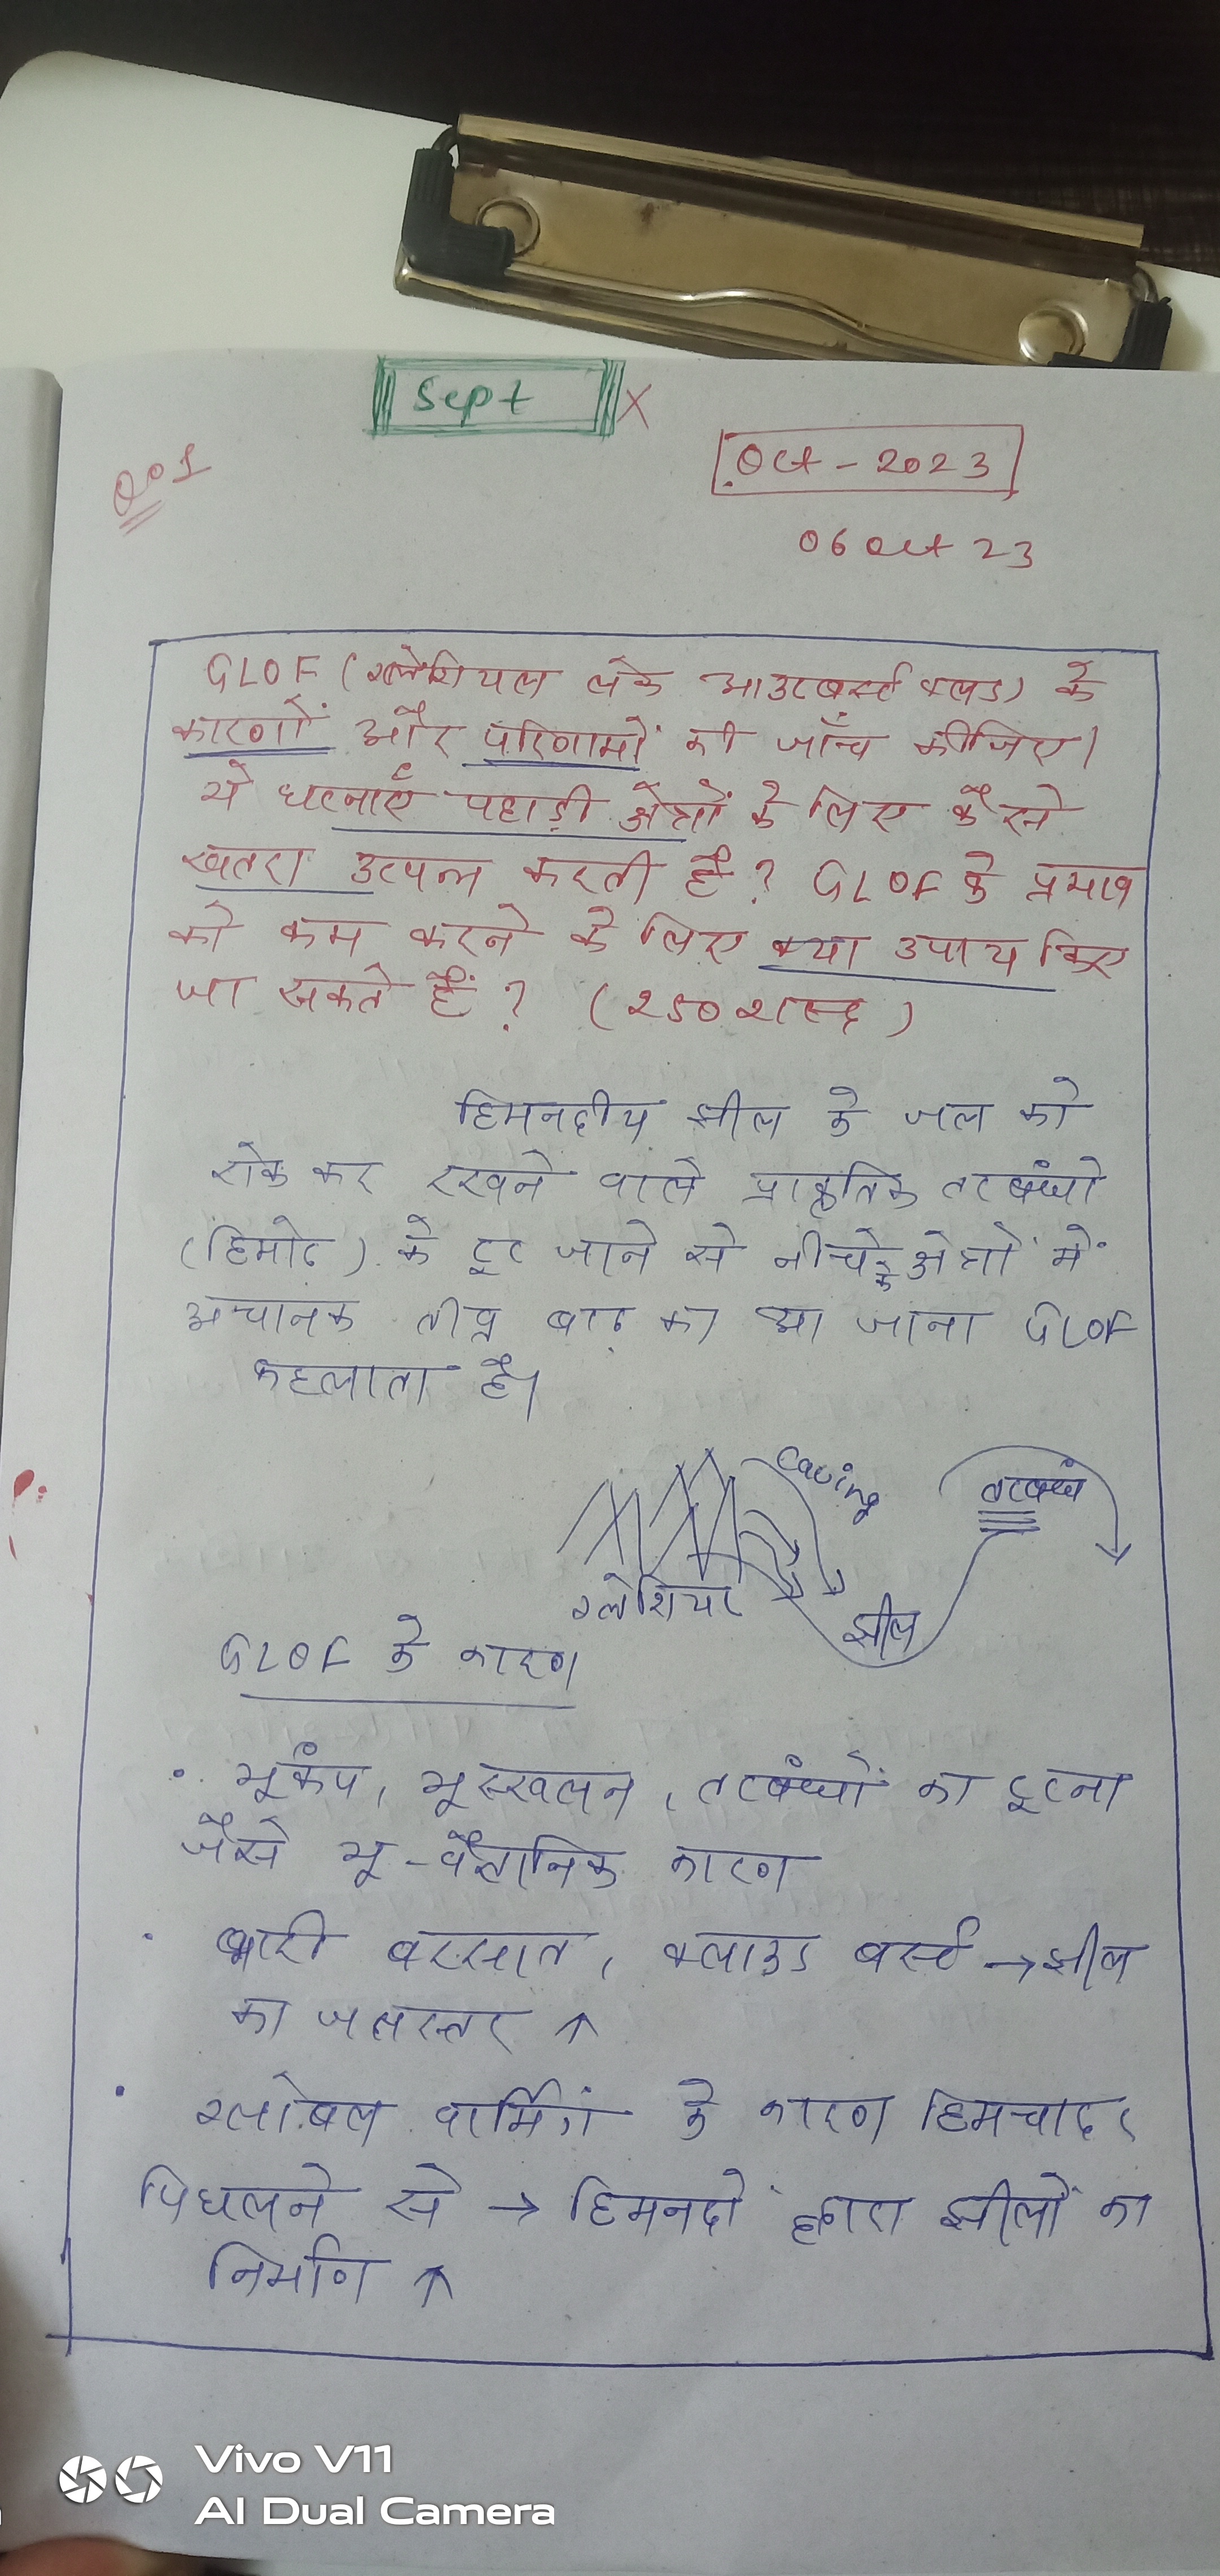 Sept X
Q01
Oct - 2023
06 Oct 23
GLOF (ग्लेशियल लेक आउटबर्स्ट फ्लड) के
कारणों और परिणामों की जाँच कीजिए।
ये घटनाएँ पहाड़ी क्षेत्रों के लिए कैसे
खतरा उत्पन्न करती हैं? GLOF के प्रभाव
को कम करने के लिए क्या उपाय किए
जा सकते हैं? (250 शब्द)
हिमनदीय झील के जल को
रोक कर रखने वाले प्राकृतिक तटबंधो
(हिमोढ़) के टूट जाने से नीचे के क्षेत्रों में
अचानक तीव्र बाढ़ का आ जाना GLOF
कहलाता है।
Caving
तटबन्धं
ग्लेशियर
झील
GLOF के कारण
• भूकंप, भूस्खलन, तटबंधों का टूटना
जैसे भू-वैज्ञानिक कारण
• भारी बरसात, क्लाउड बर्स्ट → झील
का जलस्तर ↑
• ग्लोबल वार्मिंग के कारण हिमचादर
पिघलने से → हिमनदों द्वारा झीलों का
निर्माण ↑
Vivo V11
AI Dual Camera